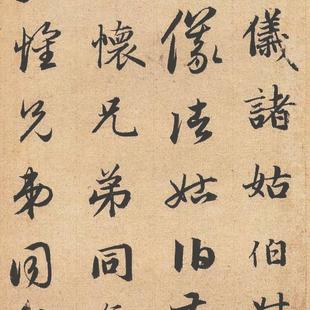 儀諸姑伯
儀諸姑伯
懷兄弟同
懷兄弟同